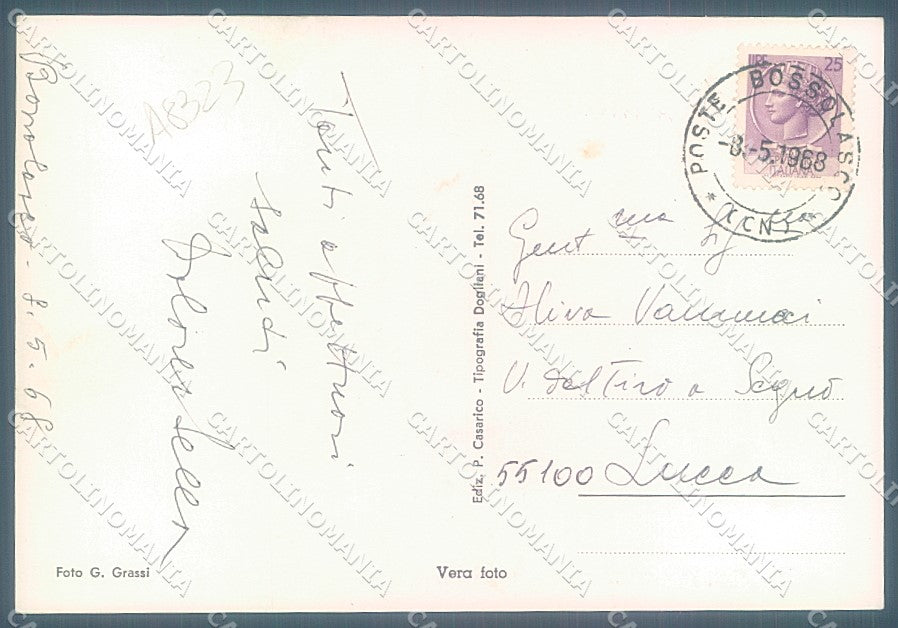 Bossolasco - 8. 5. 68
A8323
Tanti affettuosi
saluti
LIRE 25
ITALIANA
POSTE BOSSOLASCO
-8.-5.1968
* (CN) *
Gent ma Sig
Vannucci
V. del Tiro a Segno
55100 Lucca
Ediz. P. Casarico - Tipografia Dogliani - Tel. 71.68
Foto G. Grassi
Vera foto
CARTOLINOMANIA